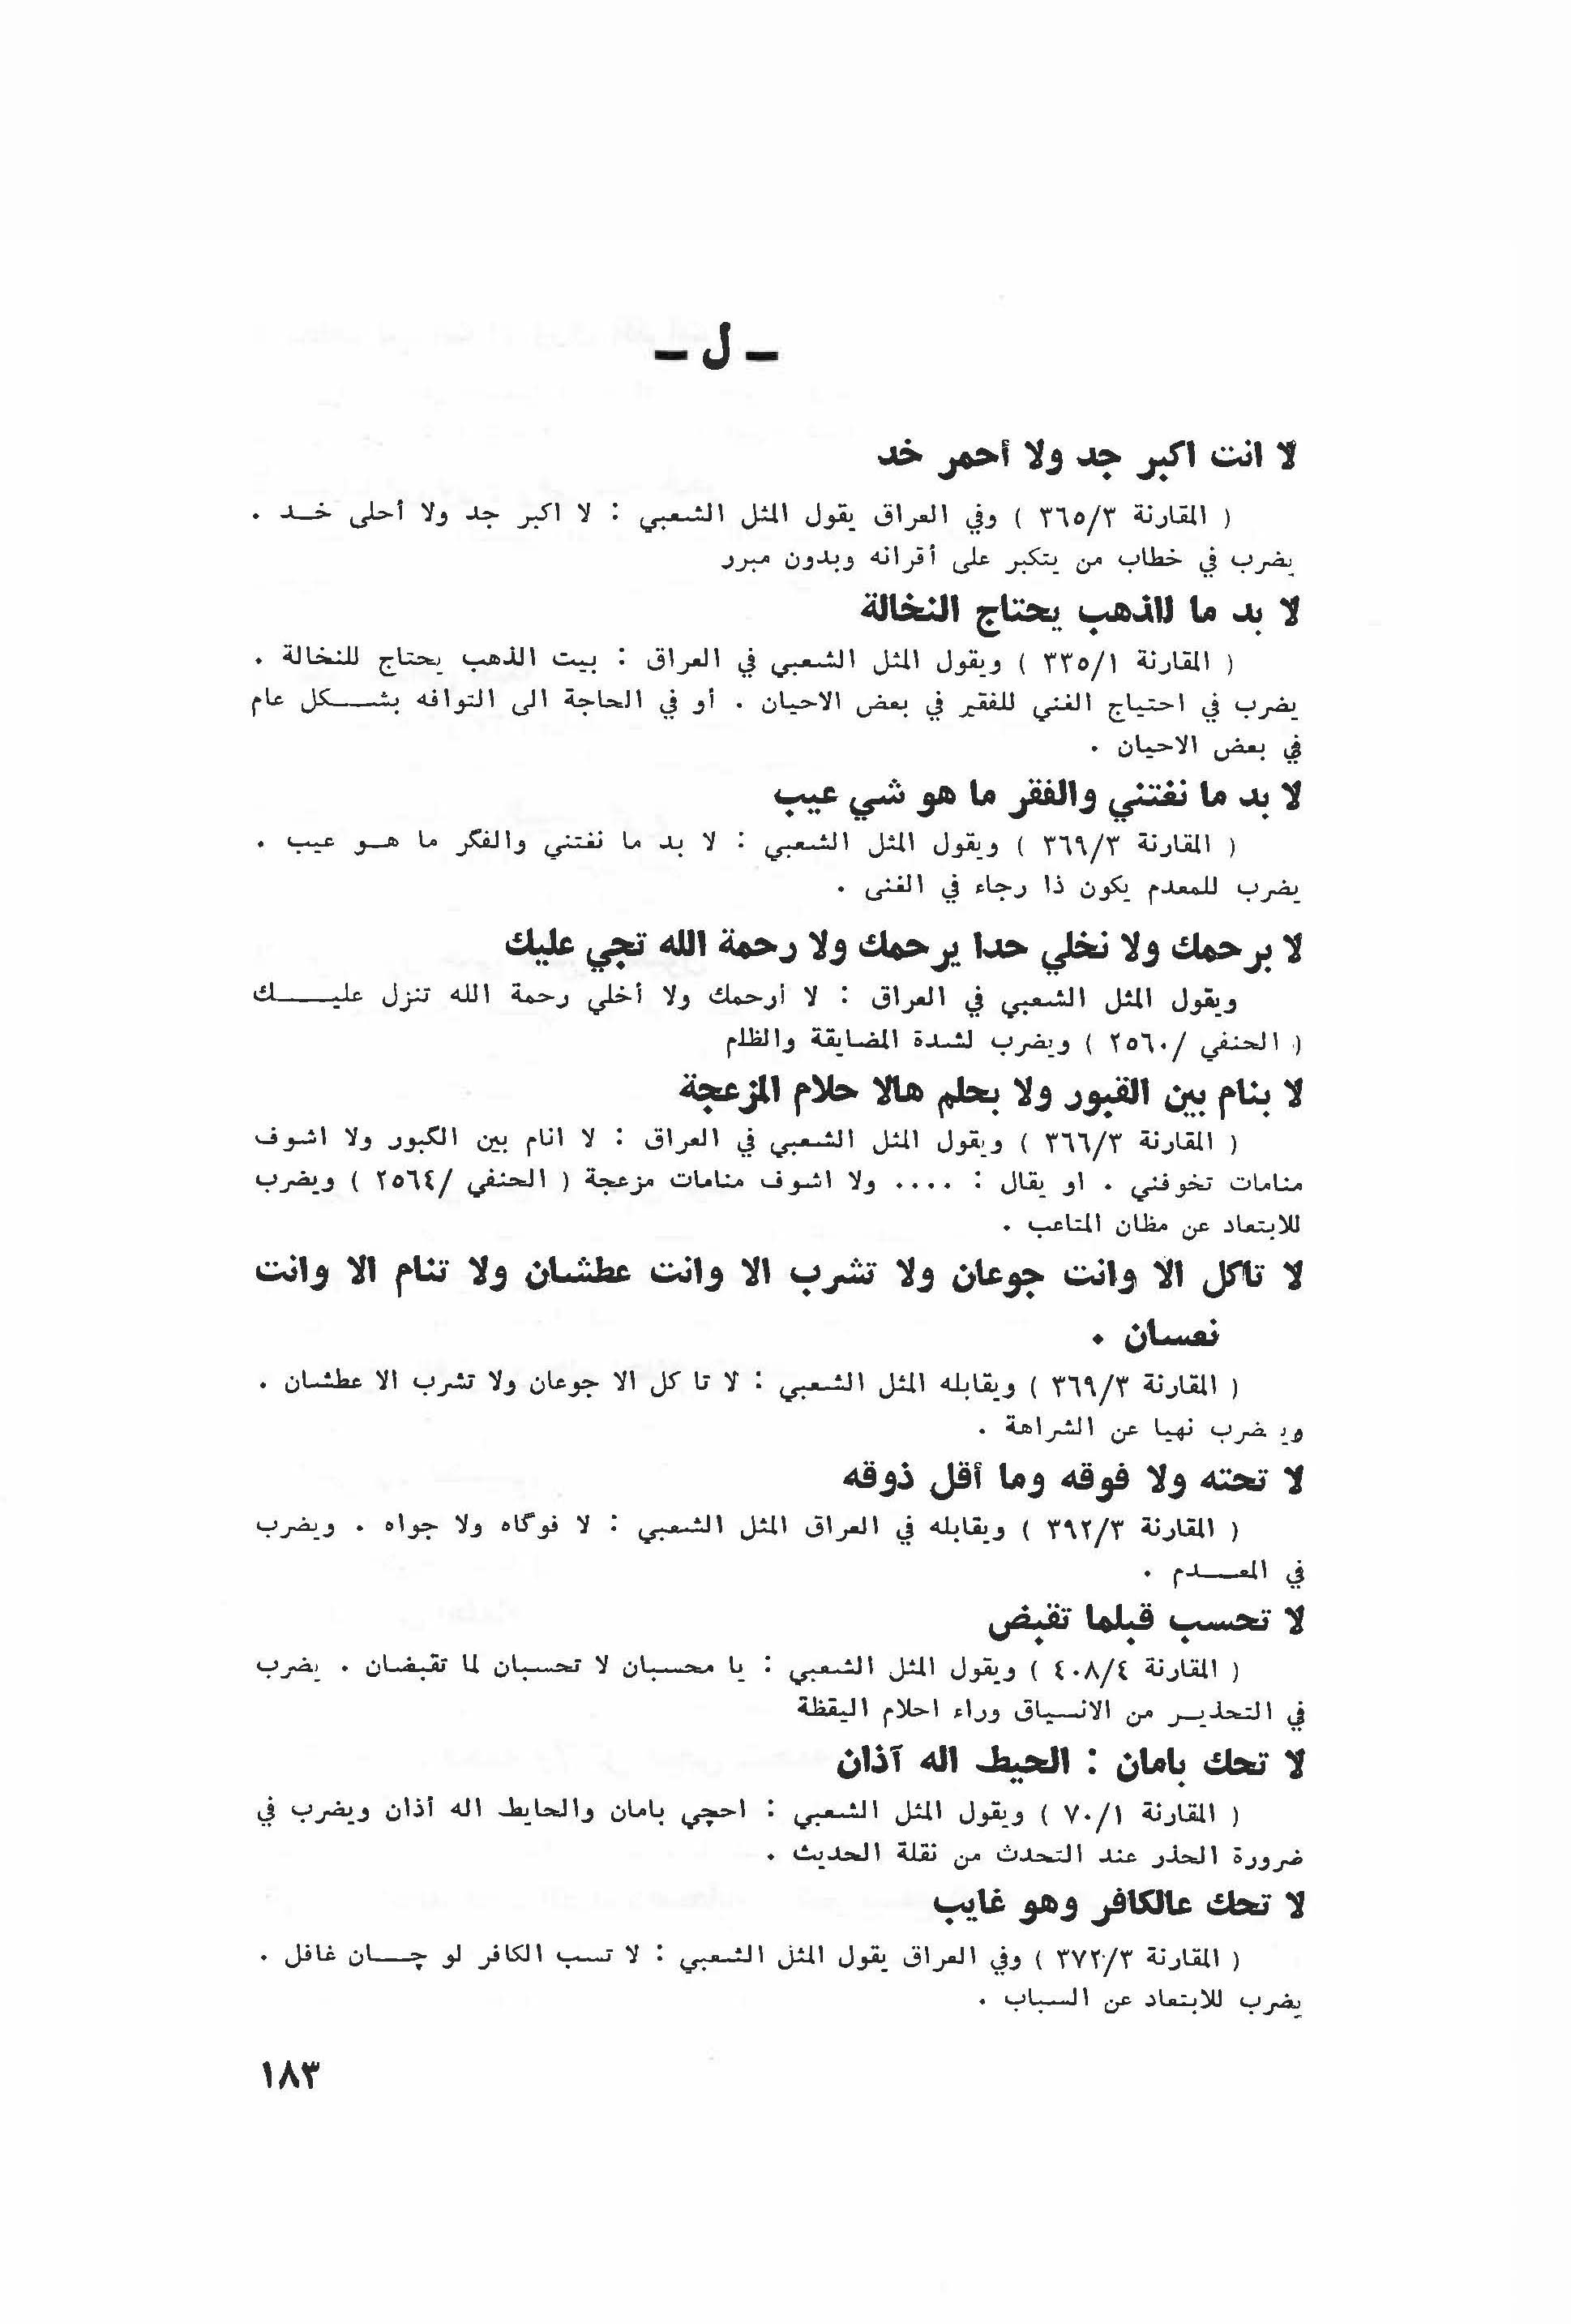 - ل -
لا انت اكبر جد ولا أحمر خد
( المقارنة ٣٦٥/٣ ) وفي العراق يقول المثل الشعبي : لا اكبر جد ولا أحلى خـد .
يضرب في خطاب من يتكبر على أقرانه وبدون مبرر
لا بد ما للذهب يحتاج النخالة
( المقارنة ٣٣٥/١ ) ويقول المثل الشعبي في العراق : بيت الذهب يحتاج للنخالة .
يضرب في احتياج الغني للفقير في بعض الاحيان . أو في الحاجة الى التوافه بشــكل عام
في بعض الاحيان .
لا بد ما نغتني والفقر ما هو شي عيب
( المقارنة ٣٦٩/٣ ) ويقول المثل الشعبي : لا بد ما نغتني والفگر ما هـو عيب .
يضرب للمعدم يكون ذا رجاء في الغنى .
لا برحمك ولا نخلي حدا يرحمك ولا رحمة الله تجي عليك
ويقول المثل الشعبي في العراق : لا أرحمك ولا أخلي رحمة الله تنزل عليــك
( الحنفي /٢٥٦٠ ) ويضرب لشدة المضايقة والظلم
لا بنام بين القبور ولا بحلم هالا حلام المزعجة
( المقارنة ٣٦٦/٣ ) ويقول المثل الشعبي في العراق : لا انام بين الگبور ولا اشوف
منامات تخوفني . او يقال : .... ولا اشوف منامات مزعجة ( الحنفي /٢٥٦٤ ) ويضرب
للابتعاد عن مظان المتاعب .
لا تاكل الا وانت جوعان ولا تشرب الا وانت عطشان ولا تنام الا وانت
نعسان .
( المقارنة ٣٦٩/٣ ) ويقابله المثل الشعبي : لا تا كل الا جوعان ولا تشرب الا عطشان .
ويضرب نهيا عن الشراهة .
لا تحته ولا فوقه وما أقل ذوقه
( المقارنة ٣٩٢/٣ ) ويقابله في العراق المثل الشعبي : لا فوگاه ولا جواه . ويضرب
في المعــدم .
لا تحسب قبلما تقبض
( المقارنة ٤٠٨/٤ ) ويقول المثل الشعبي : يا محسبان لا تحسبان لما تقبضان . يضرب
في التحذيـر من الانسياق وراء احلام اليقظة
لا تحك بامان : الحيط اله آذان
( المقارنة ٧٠/١ ) ويقول المثل الشعبي : احچي بامان والحايط اله أذان ويضرب في
ضرورة الحذر عند التحدث من نقلة الحديث .
لا تحك عالكافر وهو غايب
( المقارنة ٣٧٢/٣ ) وفي العراق يقول المثل الشعبي : لا تسب الكافر لو چــان غافل .
يضرب للابتعاد عن السباب .
١٨٣